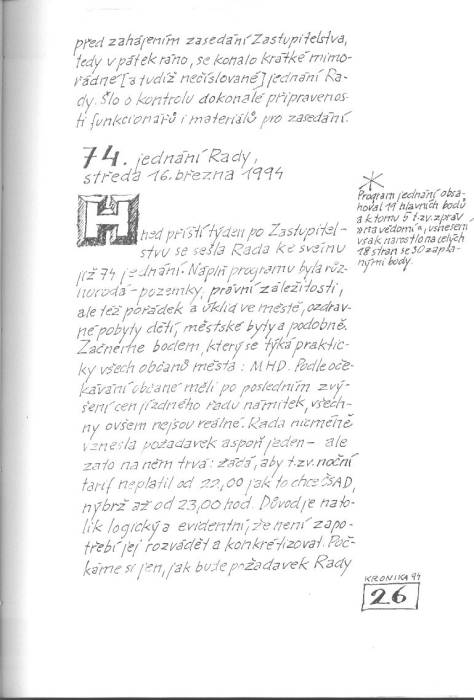 před zahájením zasedání Zastupitelstva,
tedy v pátek ráno, se konalo krátké mimo-
řádné [a tudíž nečíslované] jednání Ra-
dy. Šlo o kontrolu dokonalé připravenos-
ti funkcionářů i materiálů pro zasedání.
74. jednání Rady,
středa 16. března 1994
Hned příští týden po Zastupitel-
stvu se sešla Rada ke svému
již 74 jednání. Náplň programu byla růz-
norodá - pozemky, právní záležitosti,
ale též pořádek a úklid ve městě, ozdrav-
né pobyty dětí, městské byty a podobně.
Začněme bodem, který se týká praktic-
ky všech občanů města: MHD. Podle oče-
kávání občané měli po posledním zvý-
šení cen jízdného řadu námitek, všech-
ny ovšem nejsou reálné. Rada nicméně
vznesla požadavek aspoň jeden - ale
zato na něm trvá: žádá, aby t.zv. noční
tarif neplatil od 22,00 jak to chce ČSAD,
nýbrž až od 23,00 hod. Důvod je nato-
lik logický a evidentní, že není zapo-
třebí jej rozvádět a konkretizovat. Poč-
káme si jen, jak bude požadavek Rady
*
Program jednání obsa-
hoval 19 hlavních bodů
a k tomu 5 t.zv. zpráv
"na vědomí", usnesení
však narostlo na celých
18 stran se 30 zapla-
ným body.
KRONIKA 94
26